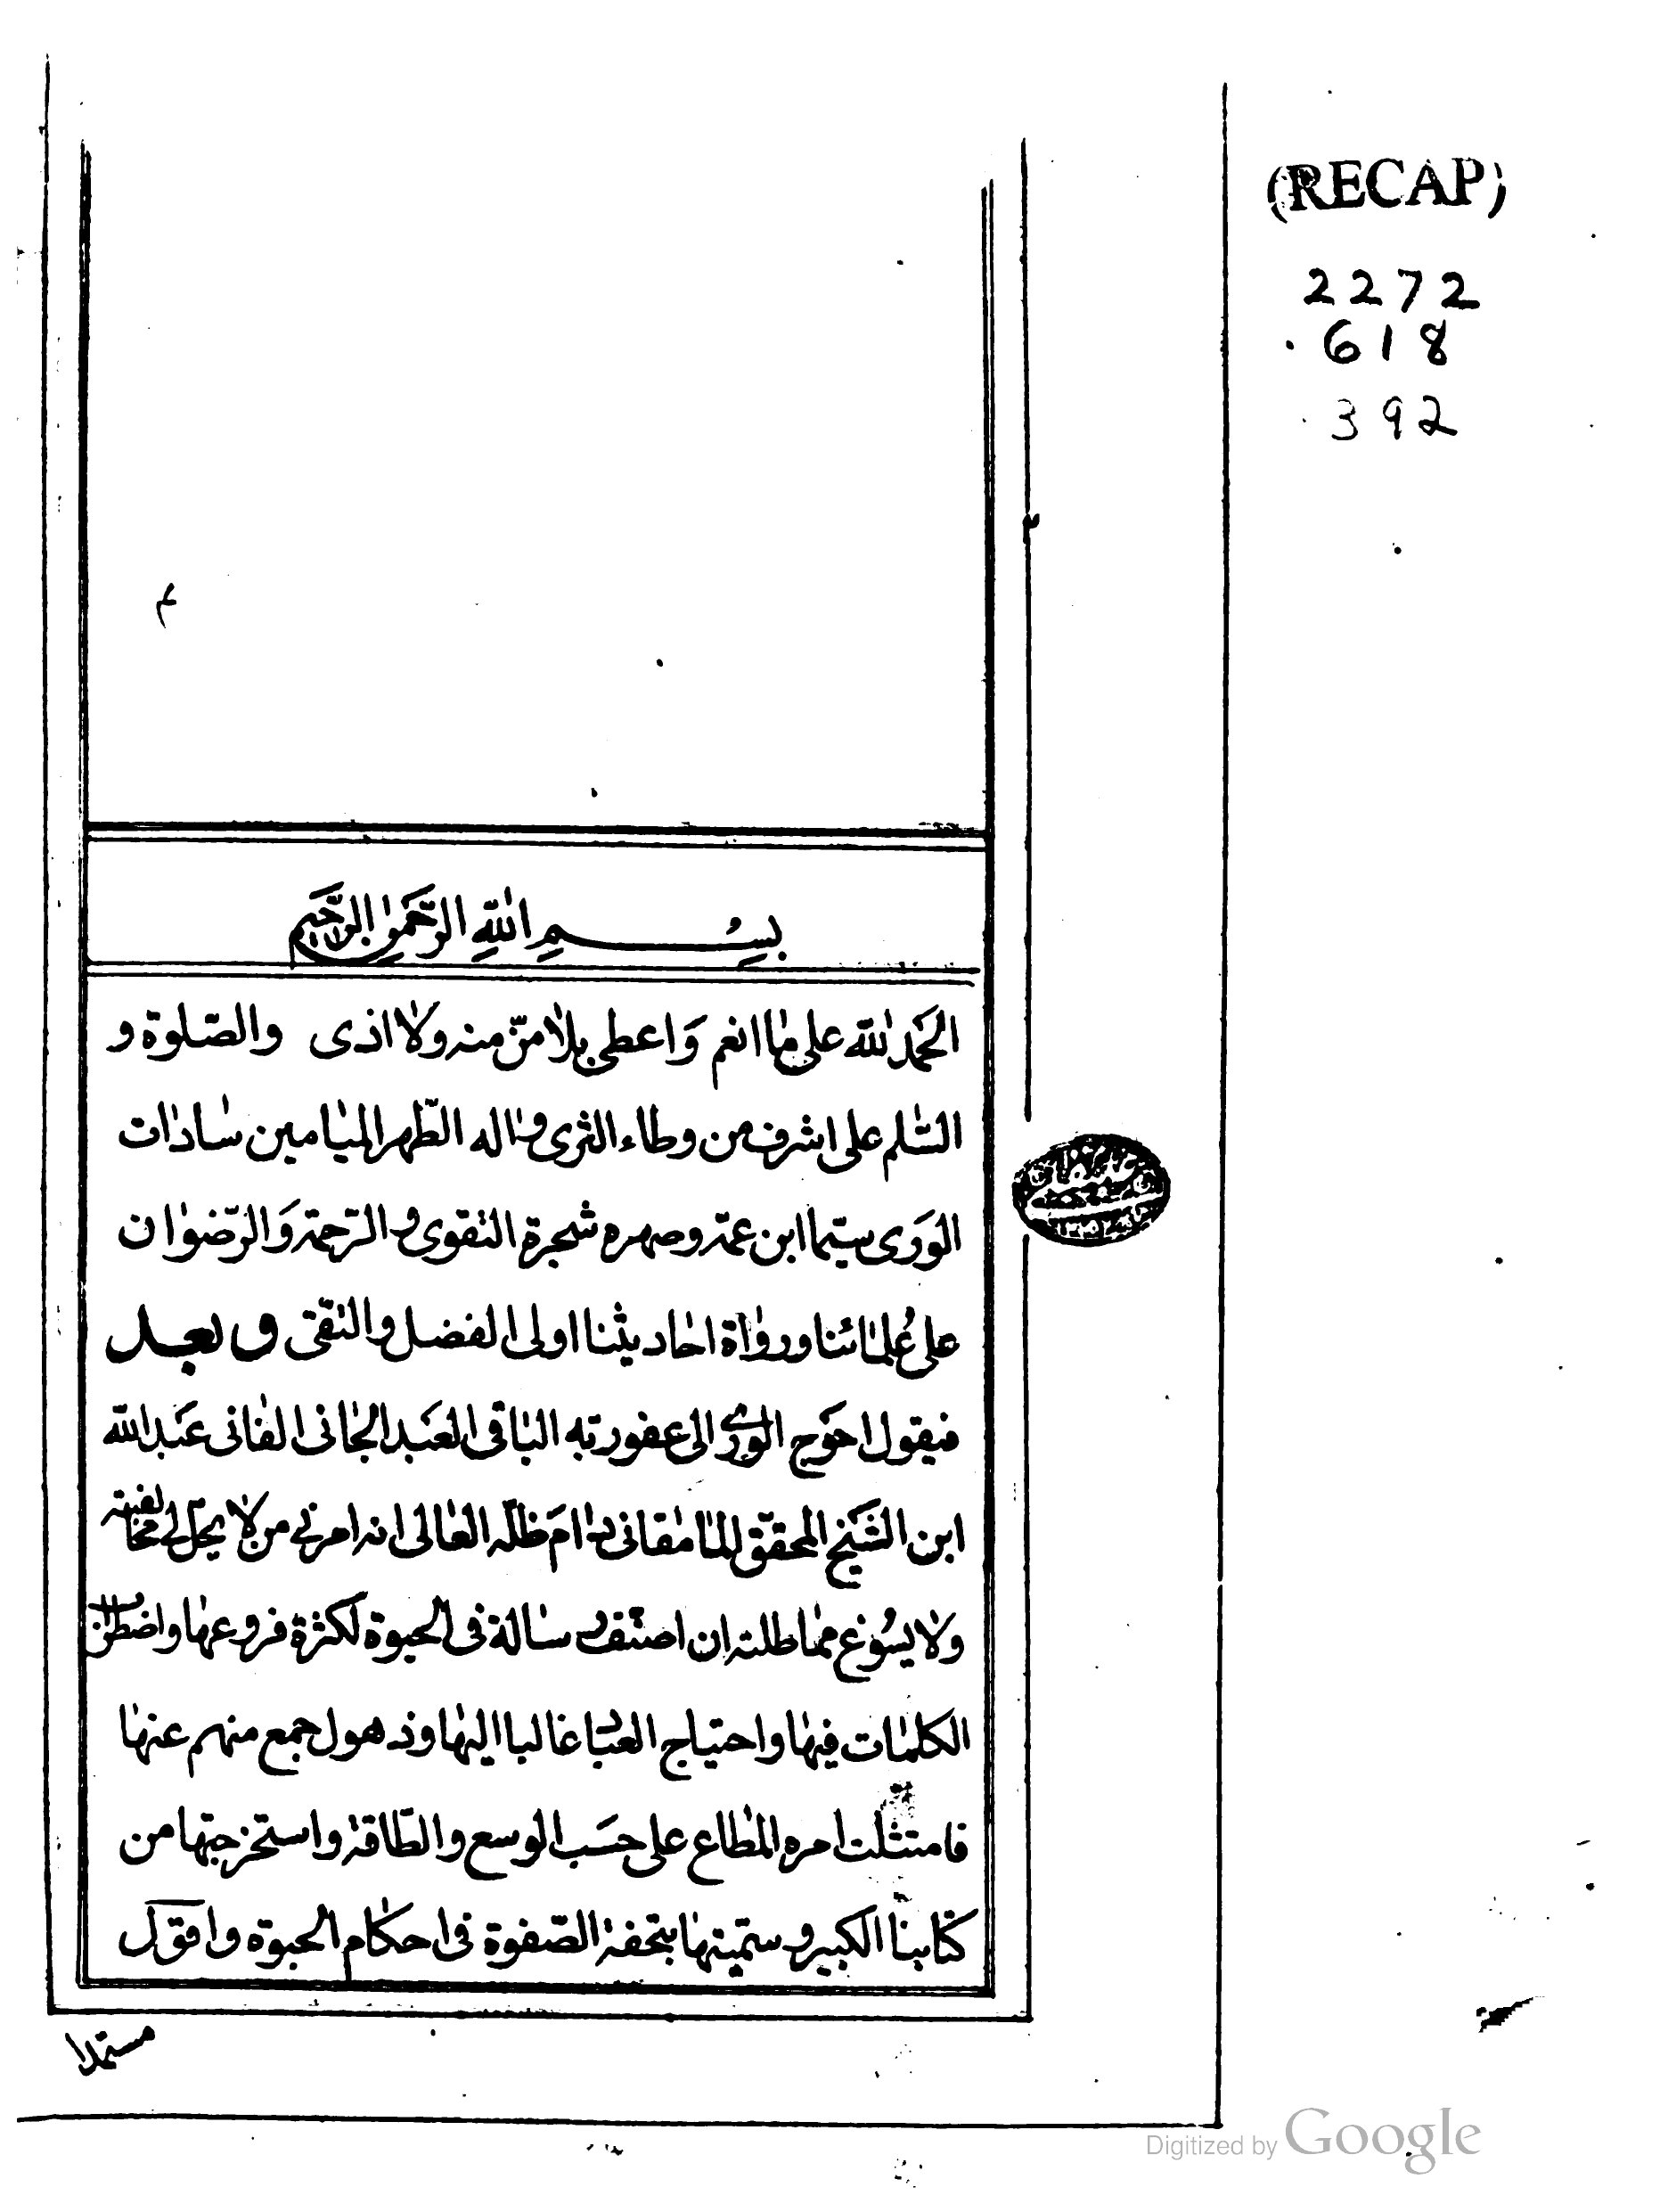 (RECAP)
2272
.618
.392
بِسْمِ اللهِ الرَّحْمٰنِ الرَّحِيمِ
الحَمد لله على ما انعم وَاعطى بلا منّ منه ولا اذى والصّلوة و
السّلم على اشرف من وطاء الثرى واله الطّهر الميامين سادات
الوَرى سيّما ابن عمّه وصهره شجرة التقوى والرّحمة وَالرّضوان
على عُلمائنا ورواة احاديثنا اولى الفضل والتّقى وبعد
فيقول احوَج الورى الى عفو ربه الباقى العَبد الجانى الفانى عَبد الله
ابن الشّيخ المحقّق المامقانى دامَ ظلّه العالى انه امرنى من لا يحلّ لى مخالفته
ولا يسُوغ مماطلته ان اصنّف رسالة فى الحبوة لكثرة فروعها واضطراب
الكلمات فيها واحتياج العباد غالبا اليها وذهول جمع منهم عنها
فامتثلت امره المطاع على حسَب الوسع والطّاقة واستخرجتها من
كتابنا الكبير وسمّيتها بتحفة الصّفوة فى احكام الحبوة واقول
مستمدا
Digitized by Google